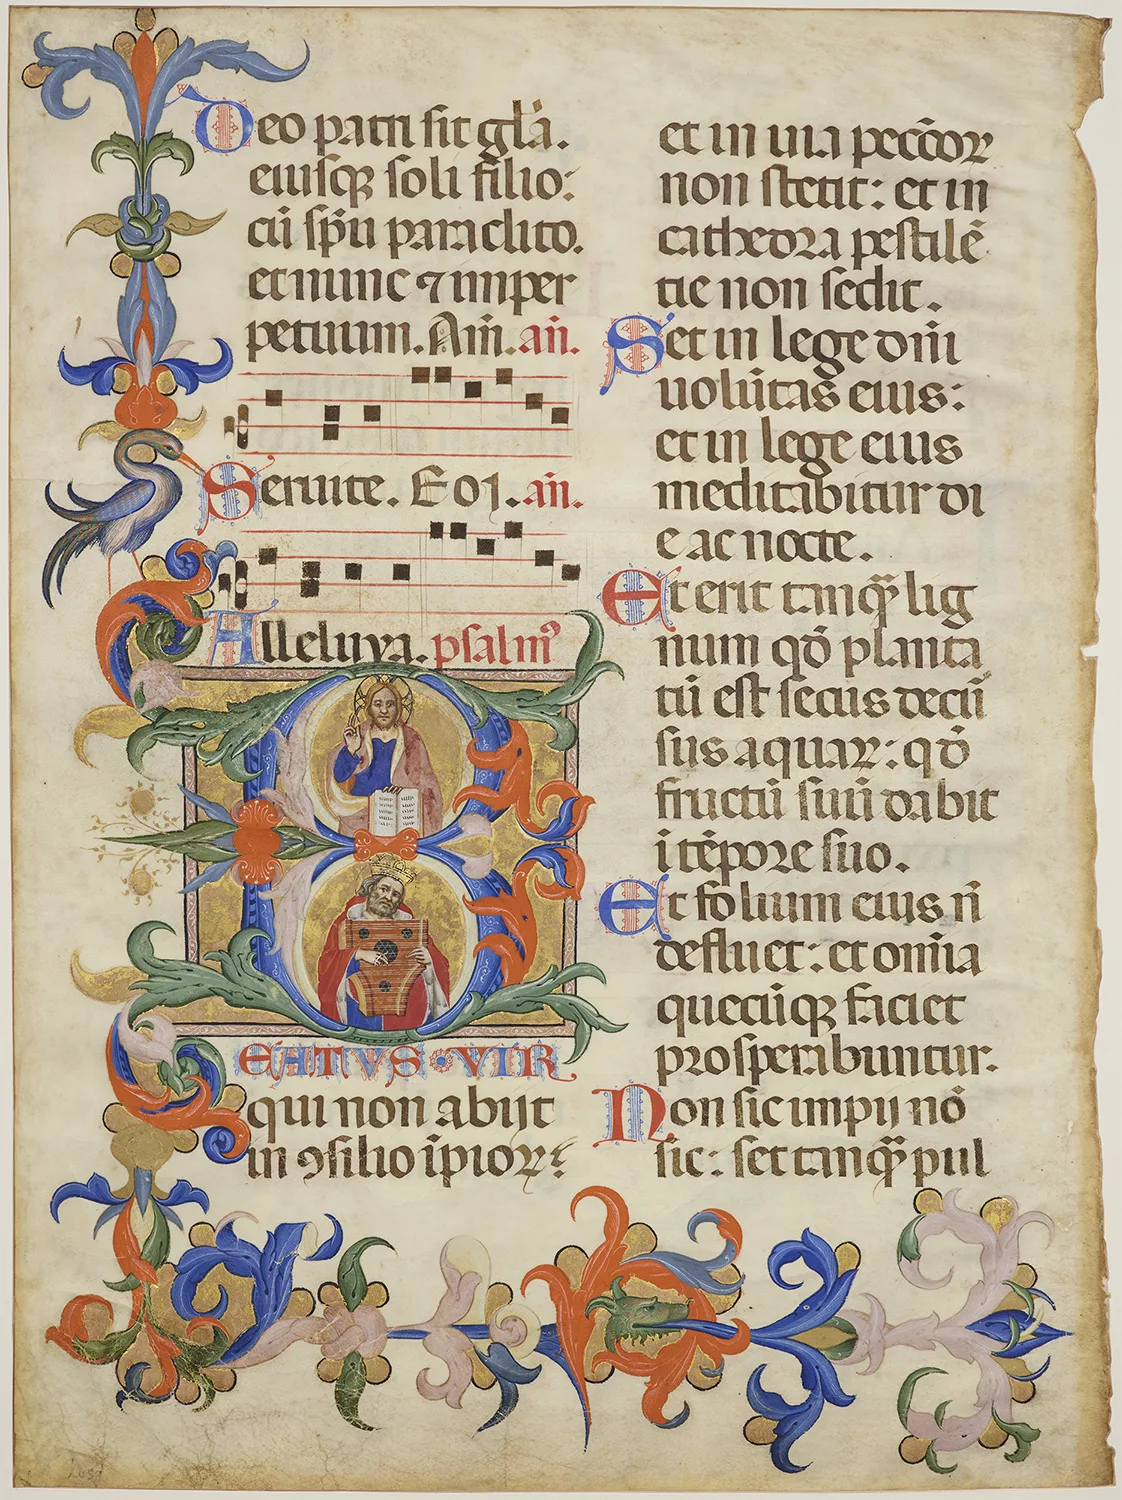 Deo patri sit gl̄a.
eiusqꝫ soli filio:
cū sp̄u paraclito.
et nunc ⁊ imper
petuum. Am̄. an̄.
Seruite. Eoɿ. an̄.
Alleluya. psalmꝰ
BEATVS · VIR
qui non abijt
in ꝯsilio īpioꝝ:
et in uia pecc̄oꝝ
non stetit: et in
cathedra pestilē
tie non sedit.
Set in lege dn̄i
uolūtas eius:
et in lege eius
meditabitur di
e ac nocte.
Et erit tanqᷓ lig
num qđ planta
tū est secus decū
sus aquaꝝ: qđ
fructū suū dabit
ī tēpore suo.
Et folium eius n̄
defluet: et om̄ia
quecūqꝫ faciet
prosperabuntur.
Non sic impij nō
sic: set tanqᷓ pul